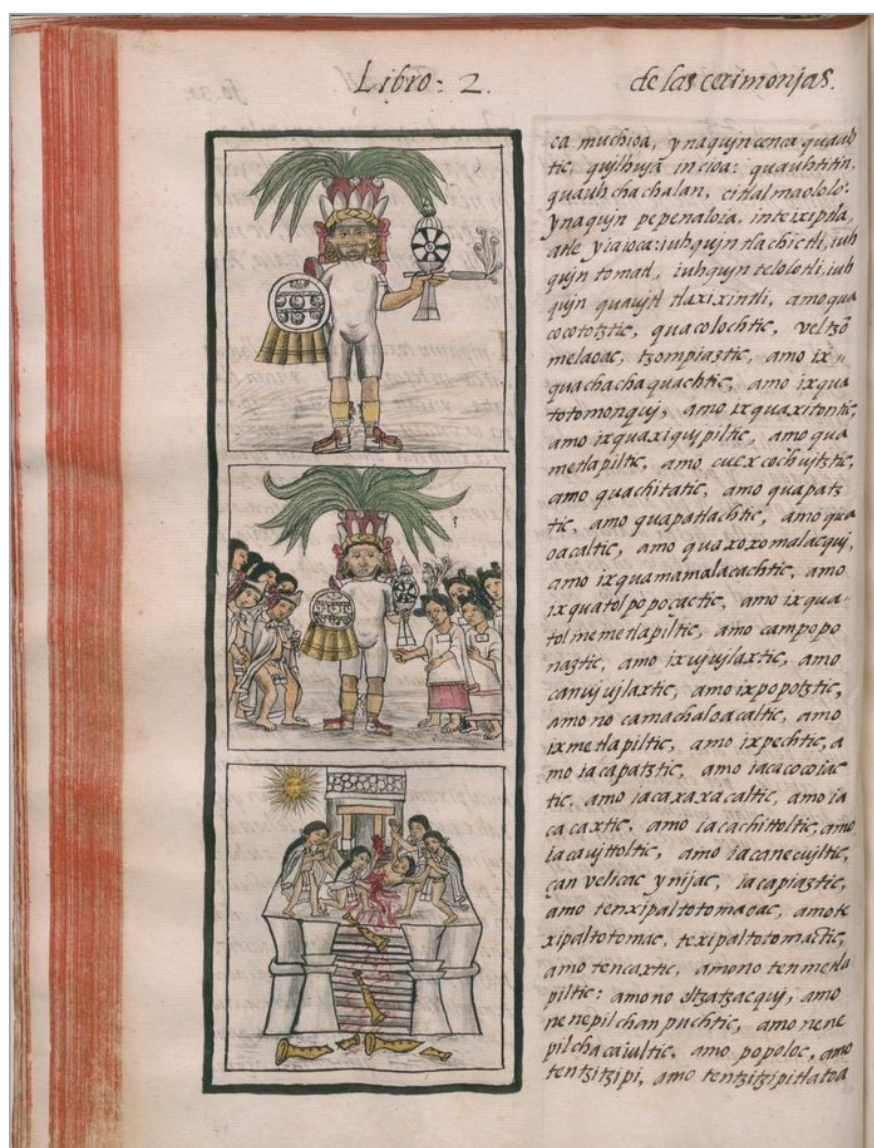 Libro: 2.
de las cerimonjas.
ca muchioa, ynaqujn cenca quauh
tic, qujlhujā in cioa: quauhtitin,
quauhchachalan, citlalmaololo:
ynaqujn pepenaloia, inteixiptla,
atle yiaioca: iuhqujn tlachictli, iuh
qujn tomatl, iuhqujn telolotli, iuh
qujn quaujtl tlaxixintli, amo qua
cocototztic, quacolochtic, veltzō
melaoac, tzompiaztic, amo ix
quachachaquachtic, amo ixqua
totomonquj, amo ixquaxitontic,
amo ixquaxiqujpiltic, amo qua
metlapiltic, amo cuexcochujtztic,
amo quachitatic, amo quapatz
tic, amo quapatlachtic, amo qua
oacaltic, amo quaxoxomalacquj,
amo ixquamamalacachtic, amo
ixquatolpopoçactic, amo ixqua-
tolmemetlapiltic, amo campopo
naztic, amo ixujujlaxtic, amo
canujujlaxtic, amo ixpopotztic,
amo no camachaloacaltic, amo
ixmetlapiltic, amo ixpechtic, a
mo iacapatztic, amo iacacocoiac
tic, amo iacaxaxacaltic, amo ia
cacaxtic, amo iacachittoltic, amo
iacaujttoltic, amo iacanecujltic,
çan velicac ynijac, iacapiaztic,
amo tenxipaltotomaoac, amo te
xipaltotomac, texipaltotomactic,
amo tencaxtic, amono tenmetla
piltic: amono eltzatzacquj, amo
nenepilchanpuchtic, amo nene
pilchacaiultic, amo popoloc, amo
tentzitzipi, amo tentzitzipitlatoa